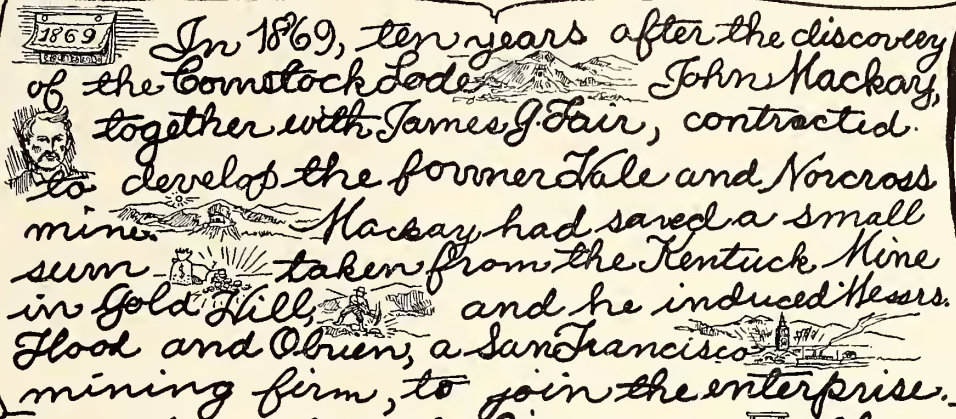 1869
In 1869, ten years after the discovery
of the Comstock Lode John Mackay,
together with James G. Fair, contracted
to develop the former Hale and Norcross
mine. Mackay had saved a small
sum taken from the Kentuck Mine
in Gold Hill, and he induced Messrs.
Flood and Obrien, a San Francisco
mining firm, to join the enterprise.